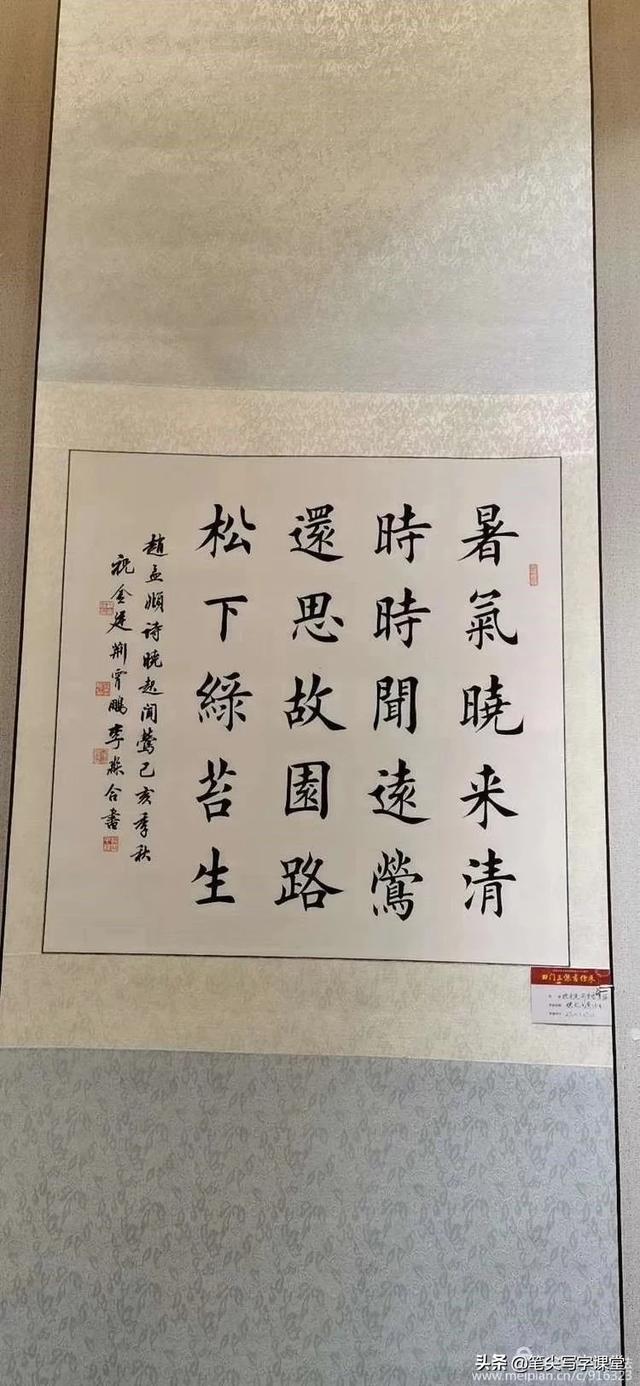 暑氣曉来清
時時聞遠鶯
還思故園路
松下綠苔生
趙孟頫诗曉起闻鶯己亥季秋
祝金是荆霄鵬李森合書
头条 @笔尖写字课堂
www.meipian.cn/c/916323